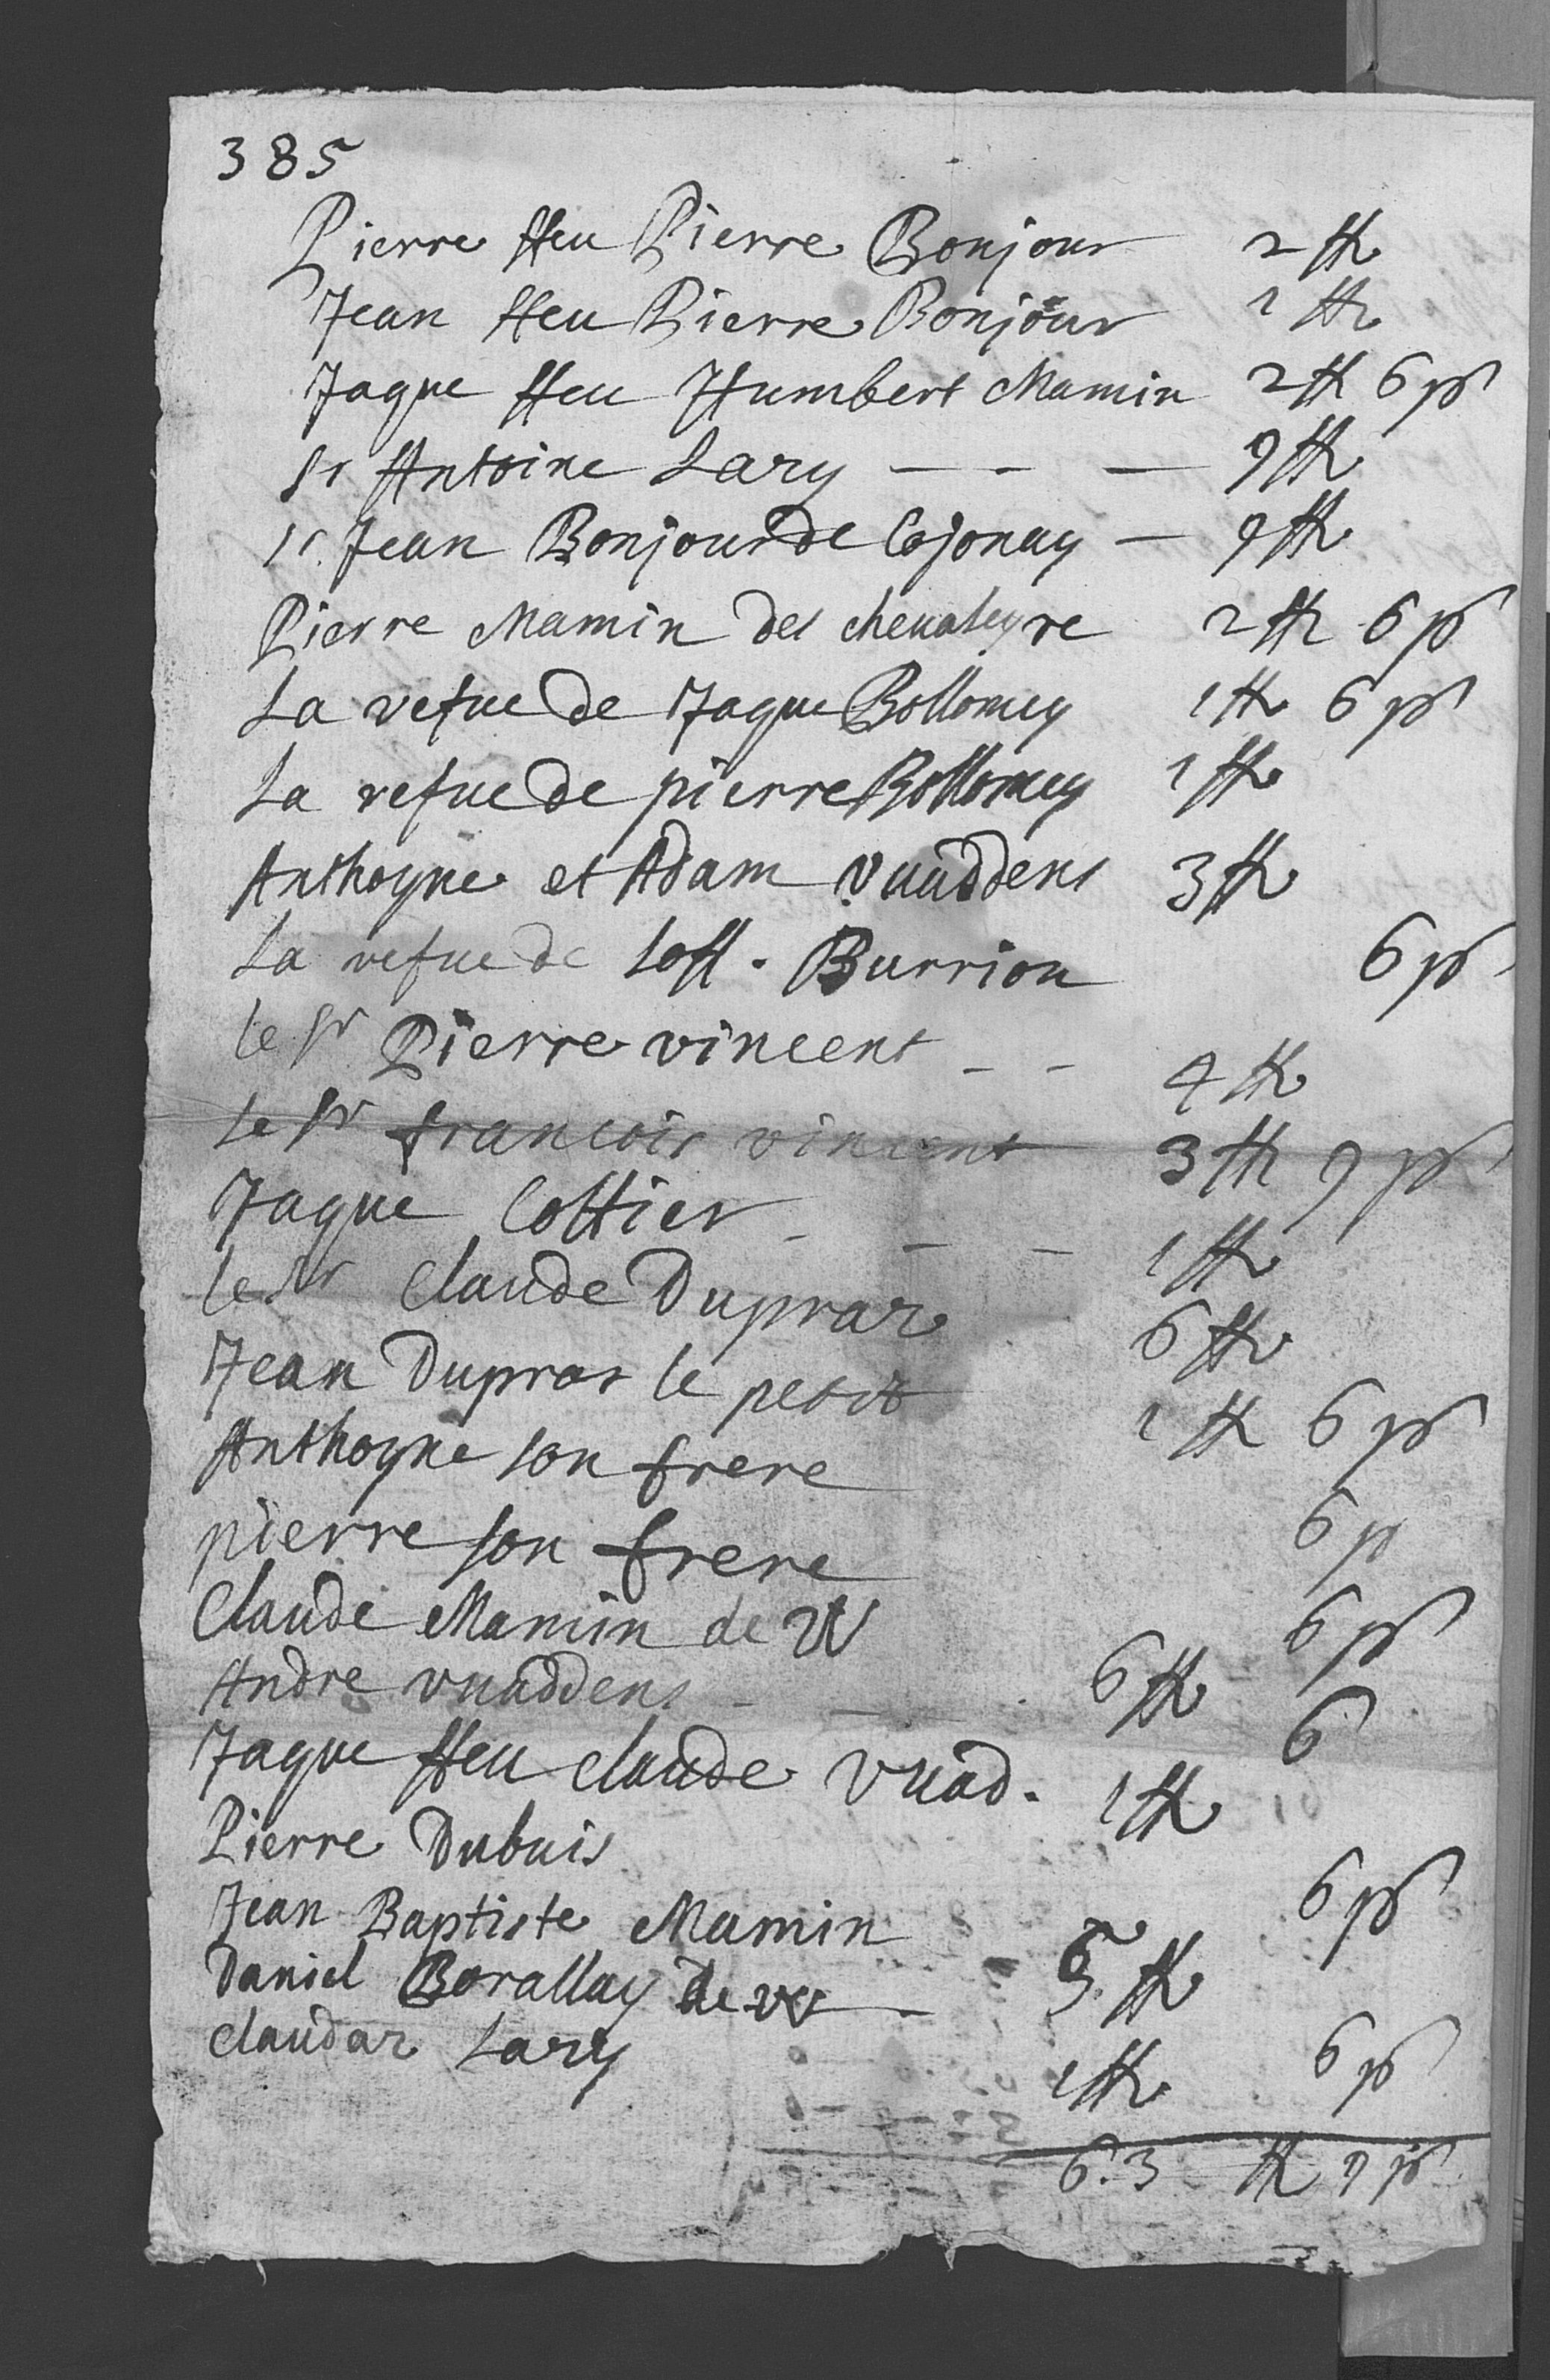 385
Pierre ffeu Pierre Bonjour 2 ff
Jean ffeu Pierre Bonjour 1 ff
Jaque ffeu Humbert Mamin 2 ff 6 ps
sr Antoine Lary — — — 9 ff
sr. Jean Bonjour de Cojonay — 9 ff
Pierre Mamin des chevaleyre 2 ff 6 ps
La vefue de Jaque Bollomey 1 ff 6 ps
La vefue de pierre Bollomey 1 ff
Anthoyne et Adam Vuaddens 3 ff
La vefue de Burrion 6 ps
le sr Pierre vincent - - 4 ff
le sr francois vincent 3 ff 9 ps
Jaque Cottier - - - 1 ff
le sr Claude Dupraz 6 ff
Jean Dupras le petit 1 ff 6 ps
Anthoyne son frere 6 p
pierre son frere 6 ps
Claude Mamin de W 6 ff 6
Andre vuaddens - - - 1 ff
Jaque ffeu claude Vuad.
Pierre Dubuis 6 ps
Jean Baptiste Mamin 5 ff
Daniel Borallay de vv - 6 ps
claudaz Lary 1 ff
6.3 ff 9 ps